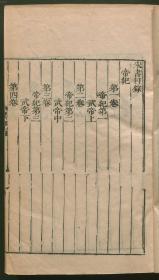 宋書目錄
帝紀
第一卷
帝紀第一
武帝上
第二卷
帝紀第二
武帝中
第三卷
帝紀第三
武帝下
第四卷